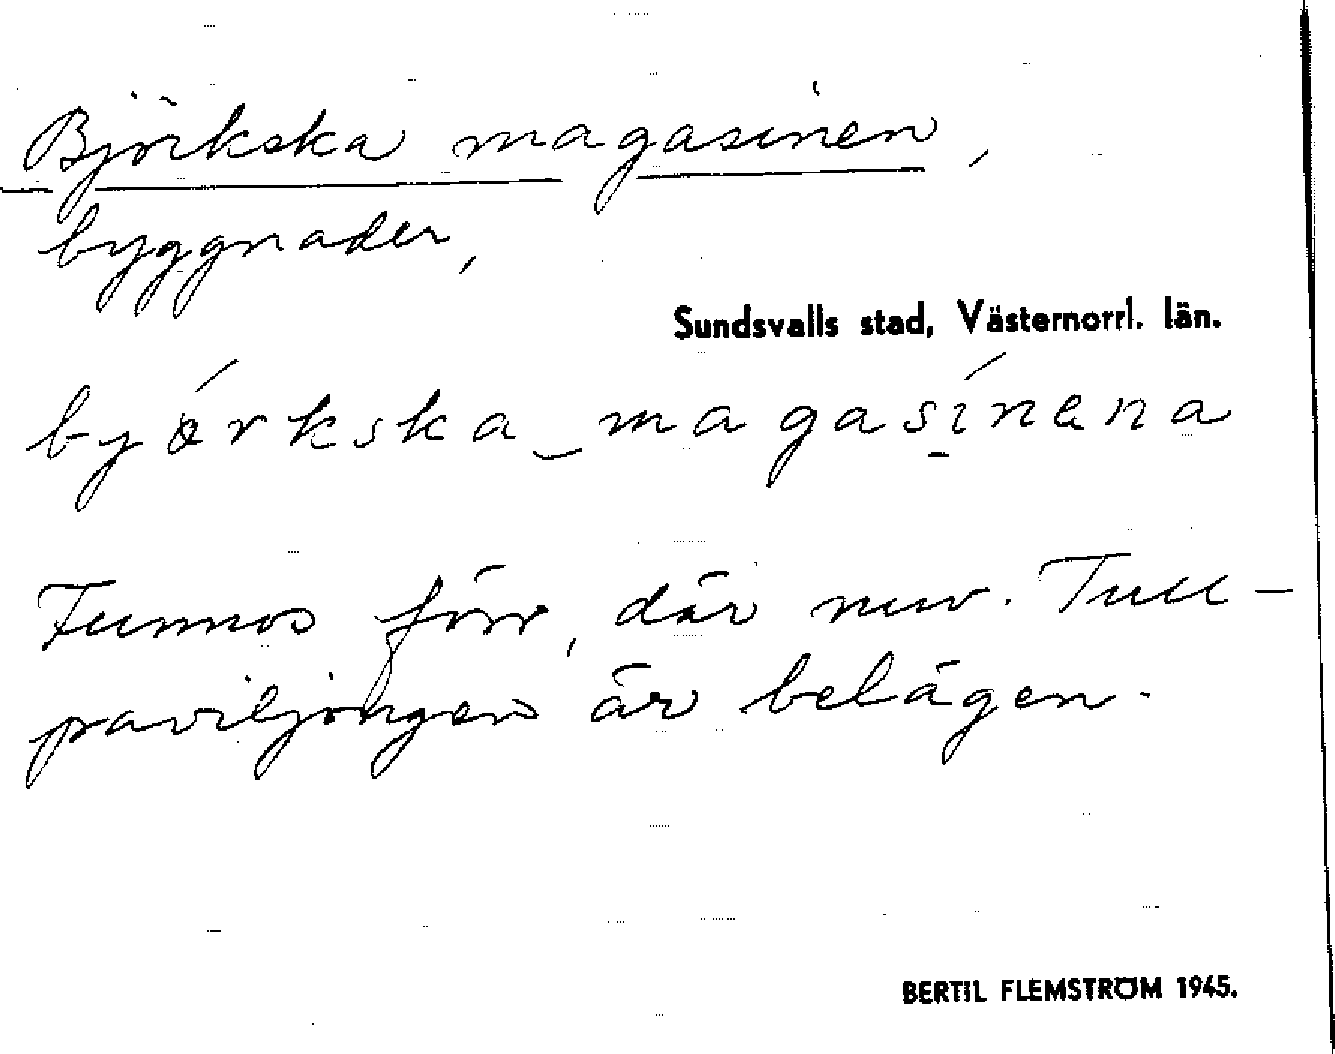 Björkska magasinen,
byggnader,
Sundsvalls stad, Västernorrl. län.
byórkska magasínena
Funnos förr, där nuv. Tull-
paviljongen är belägen.
BERTIL FLEMSTRÖM 1945.